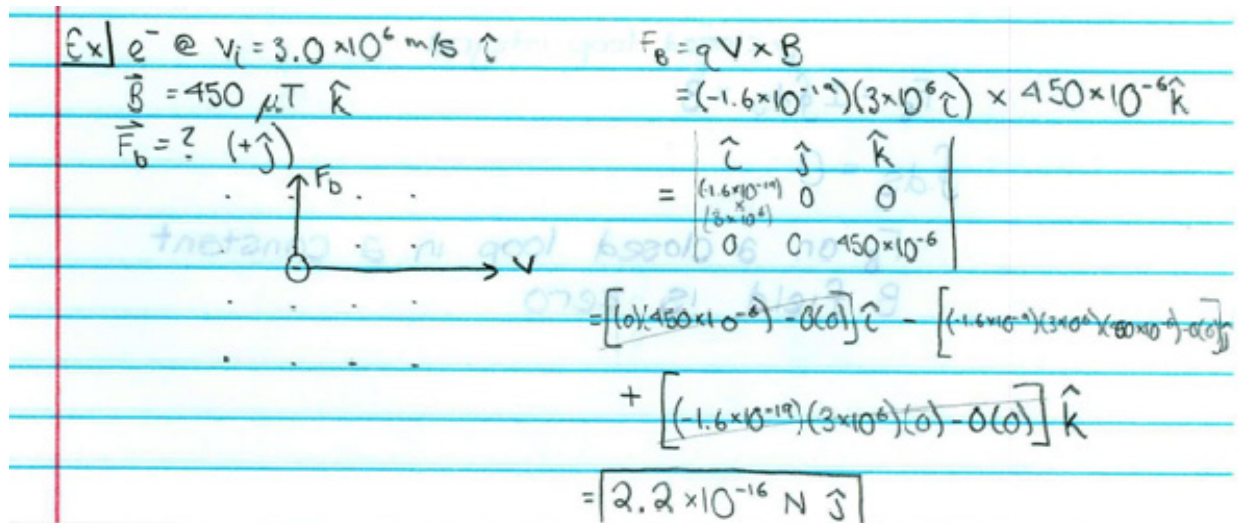 Ex] e⁻ @ Vᵢ = 3.0 ×10⁶ m/s î
B⃗ = 450 μT k̂
F⃗b = ? (+ĵ)
Fb
V
F_B = qV×B
= (-1.6×10⁻¹⁹)(3×10⁶ î) × 450×10⁻⁶ k̂
î ĵ k̂
= | (-1.6×10⁻¹⁹) × (3×10⁶) 0 0 |
0 0 450×10⁻⁶
= [(0)(450×10⁻⁶) - 0(0)] î - [(-1.6×10⁻¹⁹)(3×10⁶)(450×10⁻⁶) - 0(0)] ĵ
+ [(-1.6×10⁻¹⁹)(3×10⁶)(0) - 0(0)] k̂
= 2.2 ×10⁻¹⁶ N ĵ